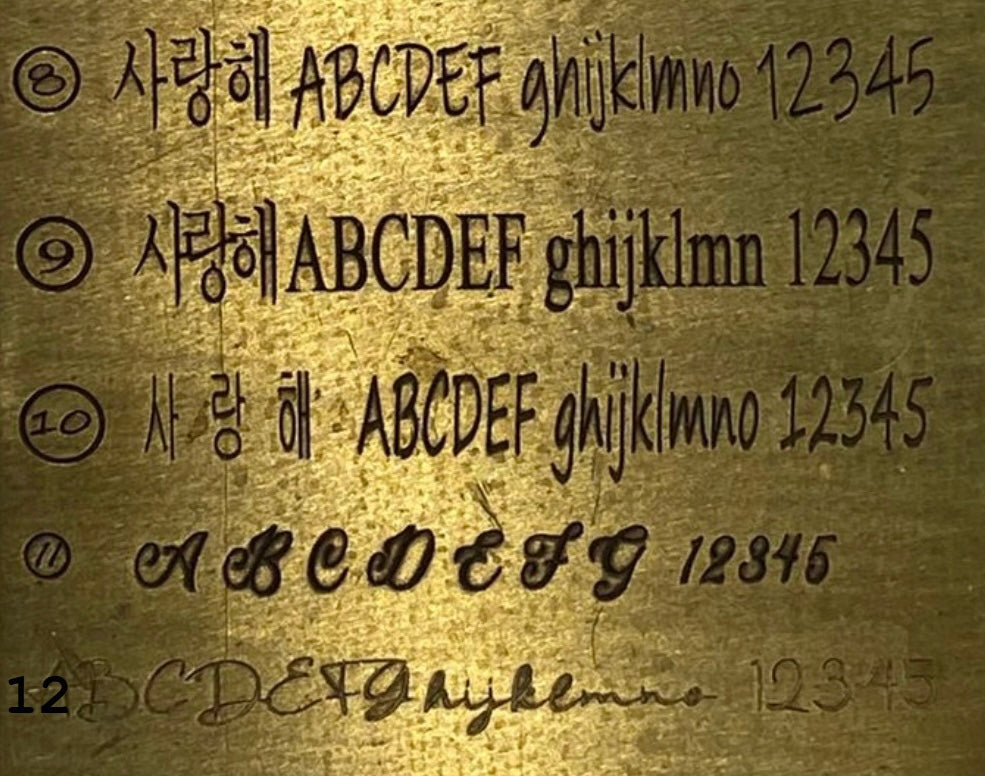 ⑧ 사랑해 ABCDEF ghijklmno 12345
⑨ 사랑해 ABCDEF ghijklmn 12345
⑩ 사랑해 ABCDEF ghijklmno 12345
⑪ ABCDEFG 12345
12 ABCDEFGhijklmno 12345